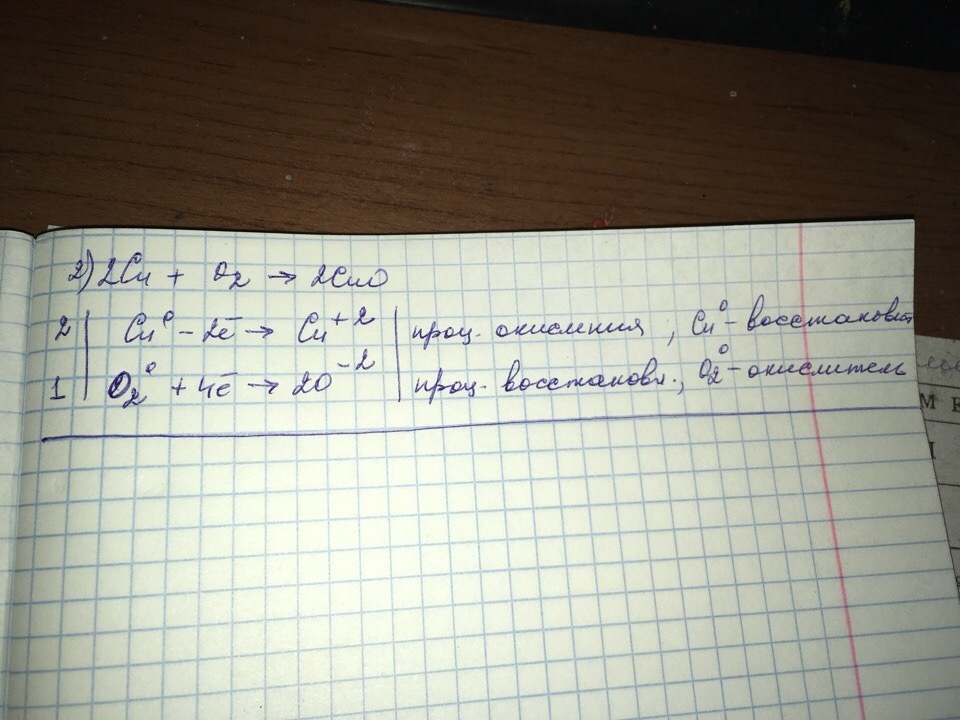 2) 2Cu + O₂ → 2CuO
2 | Cu⁰ – 2ē → Cu⁺² | проц. окисления, Cu⁰ – восстановит
1 | O₂⁰ + 4ē → 2O⁻² | проц. восстановл., O₂⁰ – окислитель
М Е